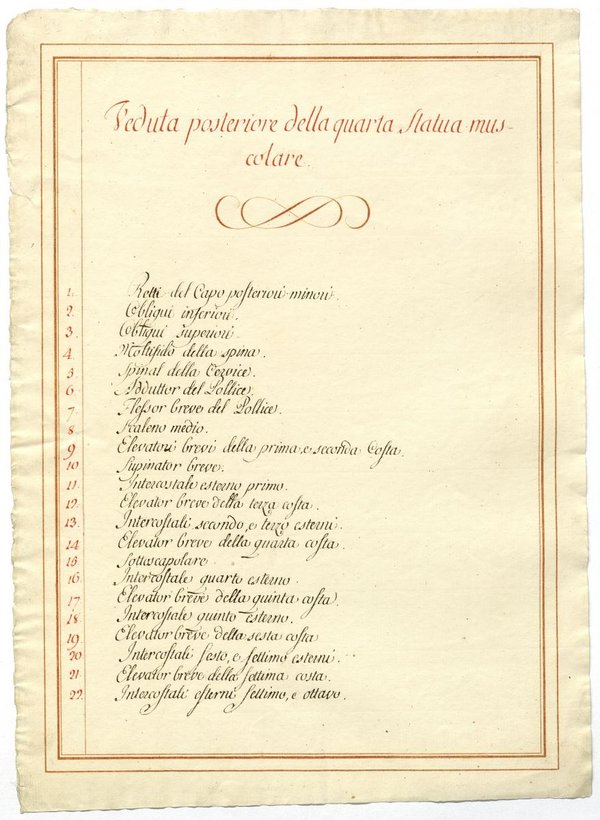 Veduta posteriore della quarta Statua mus-
colare.
1. Retti del Capo posteriori minori.
2. Obliqui inferiori.
3. Obliqui superiori.
4. Moltifido della spina.
5. Spinal della Cervice.
6. Adduttor del Pollice.
7. Flessor breve del Pollice.
8. Scaleno medio.
9. Elevatori brevi della prima, e seconda Costa.
10. Supinator breve.
11. Intercostale esterno primo.
12. Elevator breve della terza costa.
13. Intercostali secondo, e terzo esterni.
14. Elevator breve della quarta costa.
15. Sottoscapolare.
16. Intercostale quarto esterno.
17. Elevator breve della quinta costa.
18. Intercostale quinto esterno.
19. Elevator breve della sesta costa
20. Intercostali sesto, e settimo esterni.
21. Elevator breve della settima costa.
22. Intercostali esterni settimo, e ottavo.